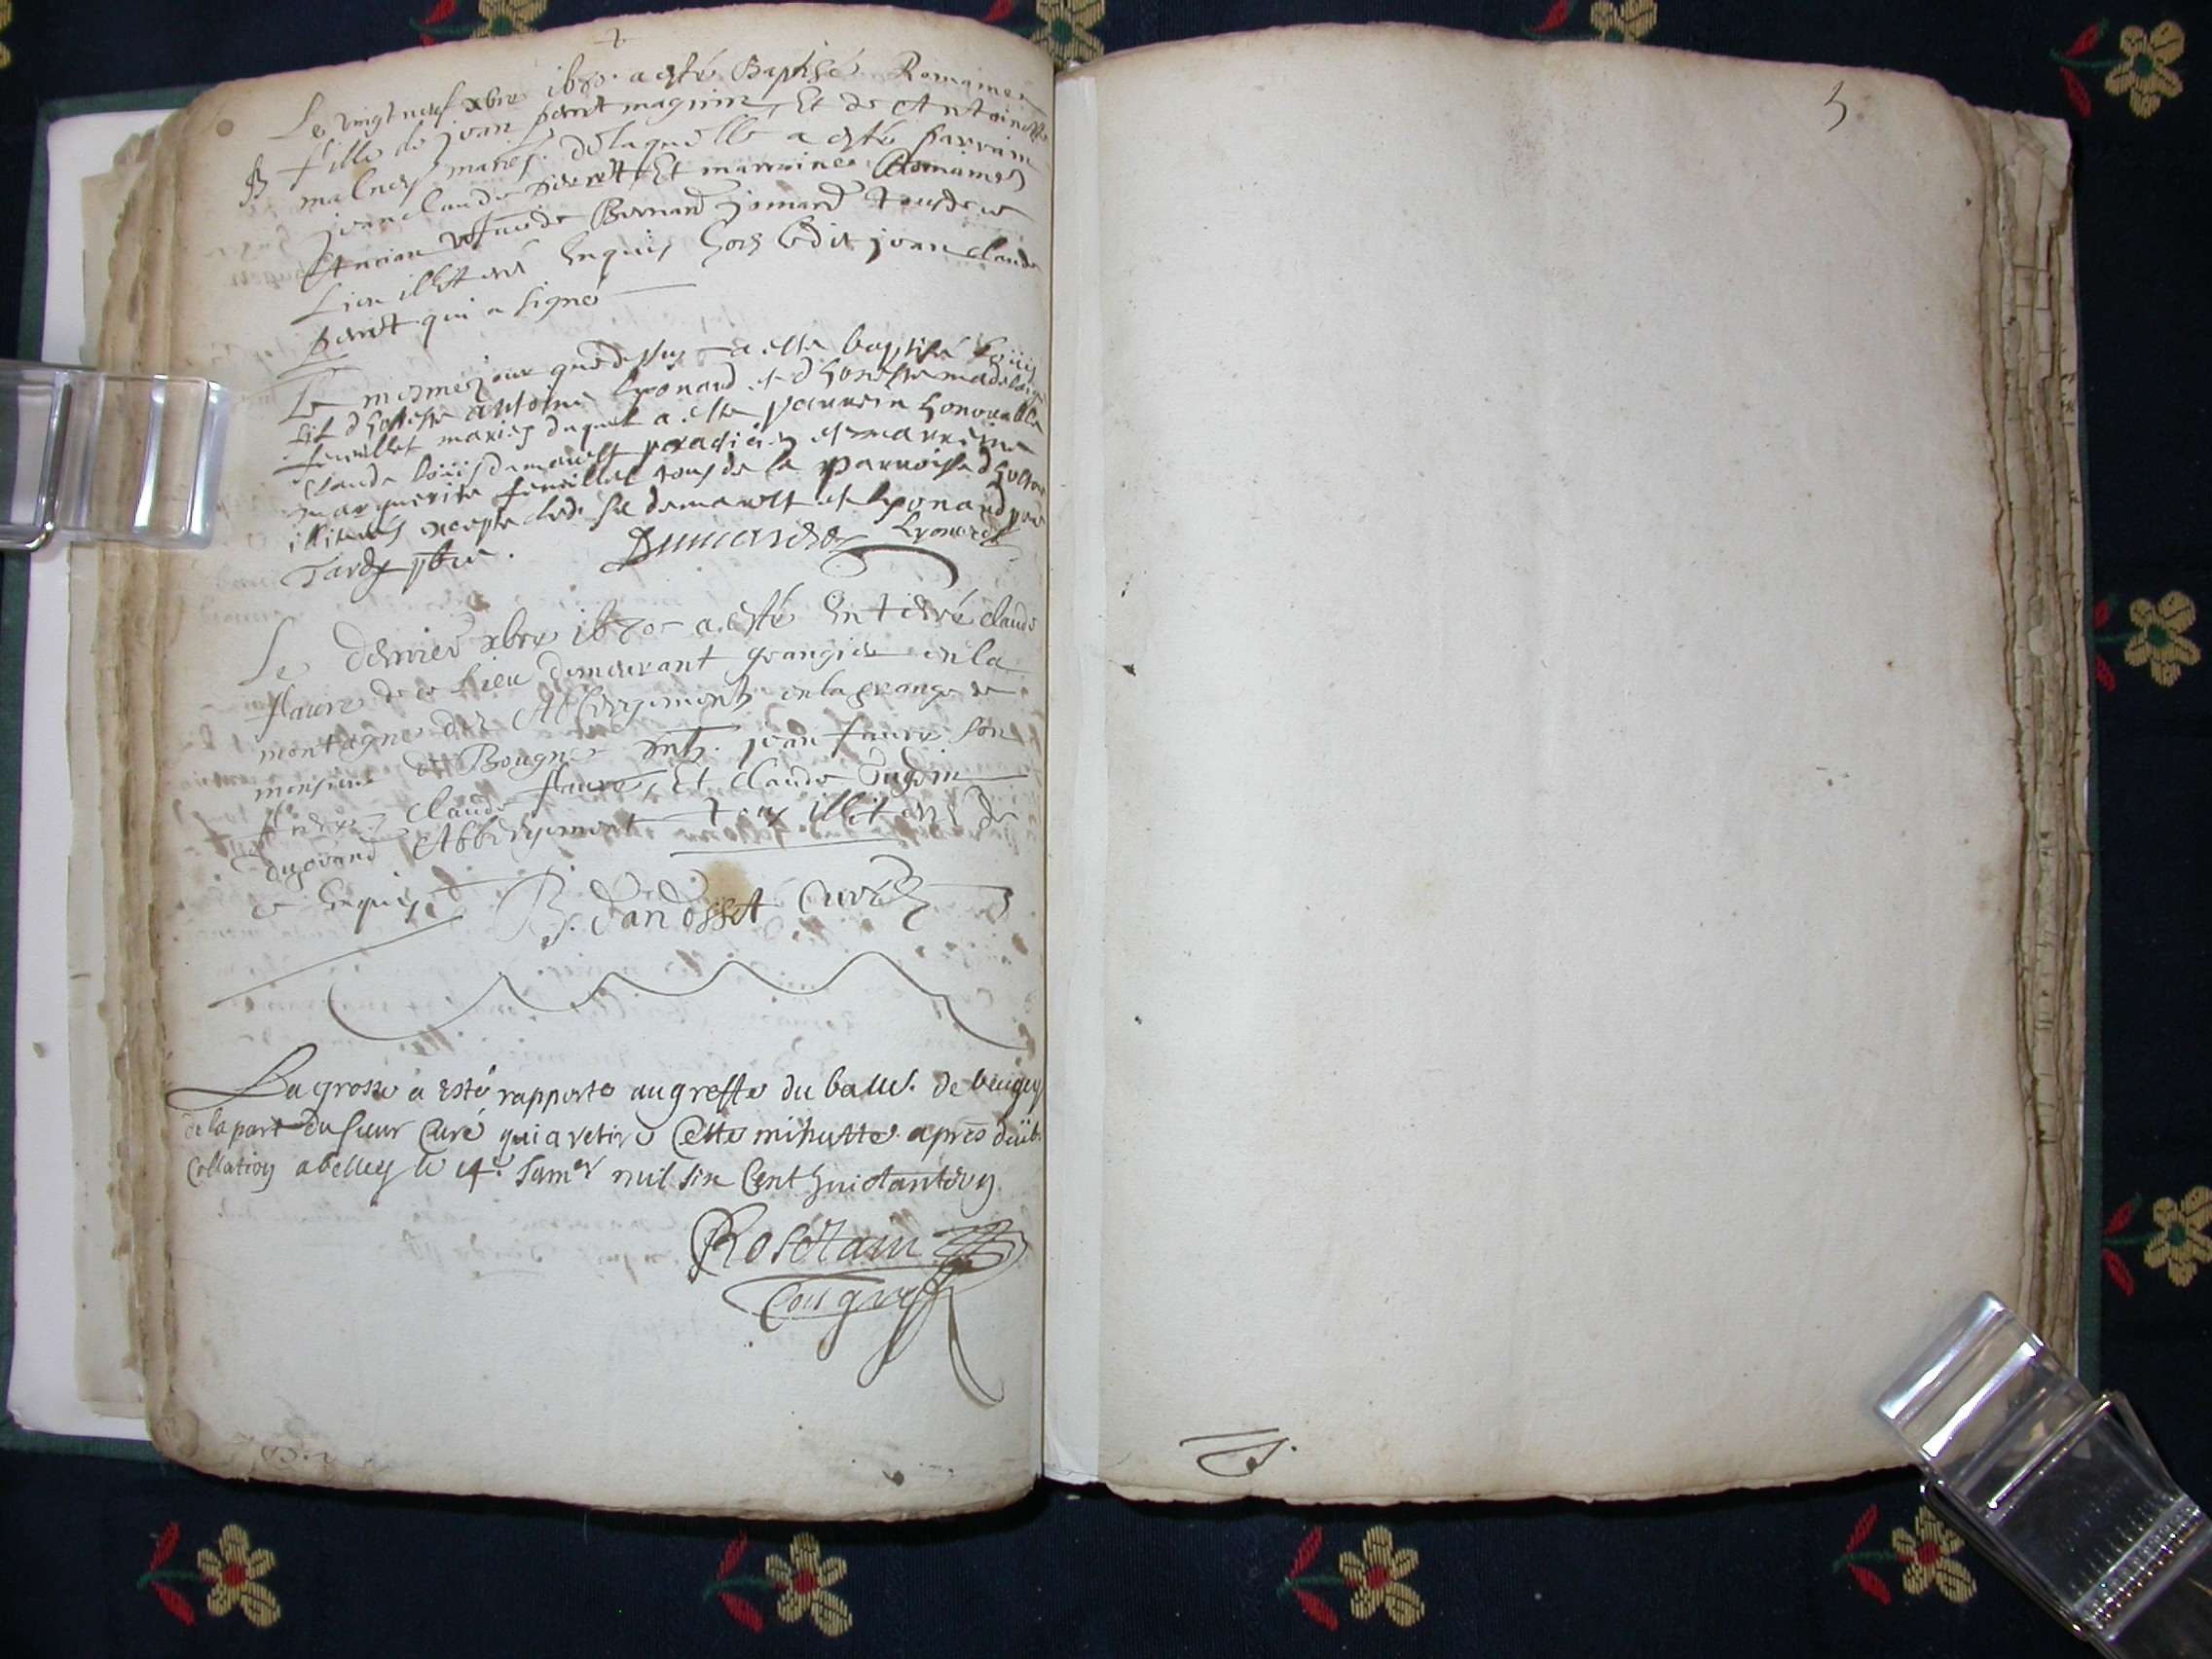 Le vingt neuf xbre 1680 a esté Baptisé Romaine
fille de jean perret magnin, Et de Antoinette
B malnoy mariés. de laquelle a esté parrain
jean claude perrett Et marraine Romaine
Ancian de Bernard jomard tous de ce
Lieu illetteré Enquis hors ledit jean claude
perret qui a signé
Le mesme jour que dessus a esté baptisé Loüis
fils d'honeste antoine Lyonard et d'honeste madelaine
feuillet mariés duquel a esté parrein honorable
claude loüis demarest praticien et marreine
marguerite feuillet tous de la parroisse d'
illiterés excepté led. Sr demarest et Lyonard
Tardy pbre. Lyonard
Le dernier xbre 1680 a esté Enterré claude
flavre de ce Lieu demeurant grangier en la
montagne des Abbergements en la grange de
monsieur de Bougne pnts. jean favre son
frere, claude flavre, Et claude
du grand Abbergement tous illiterés de
ce Enquis R. Dandosset Curé
La grosse a esté rapporté au greffe du baill. de beugey
de la part du sieur Curé qui a retiré Cette minutte apres deüb.
Collation a belley le 4. Janer mil six Cent huictante un
Rosetain
Con gref
5